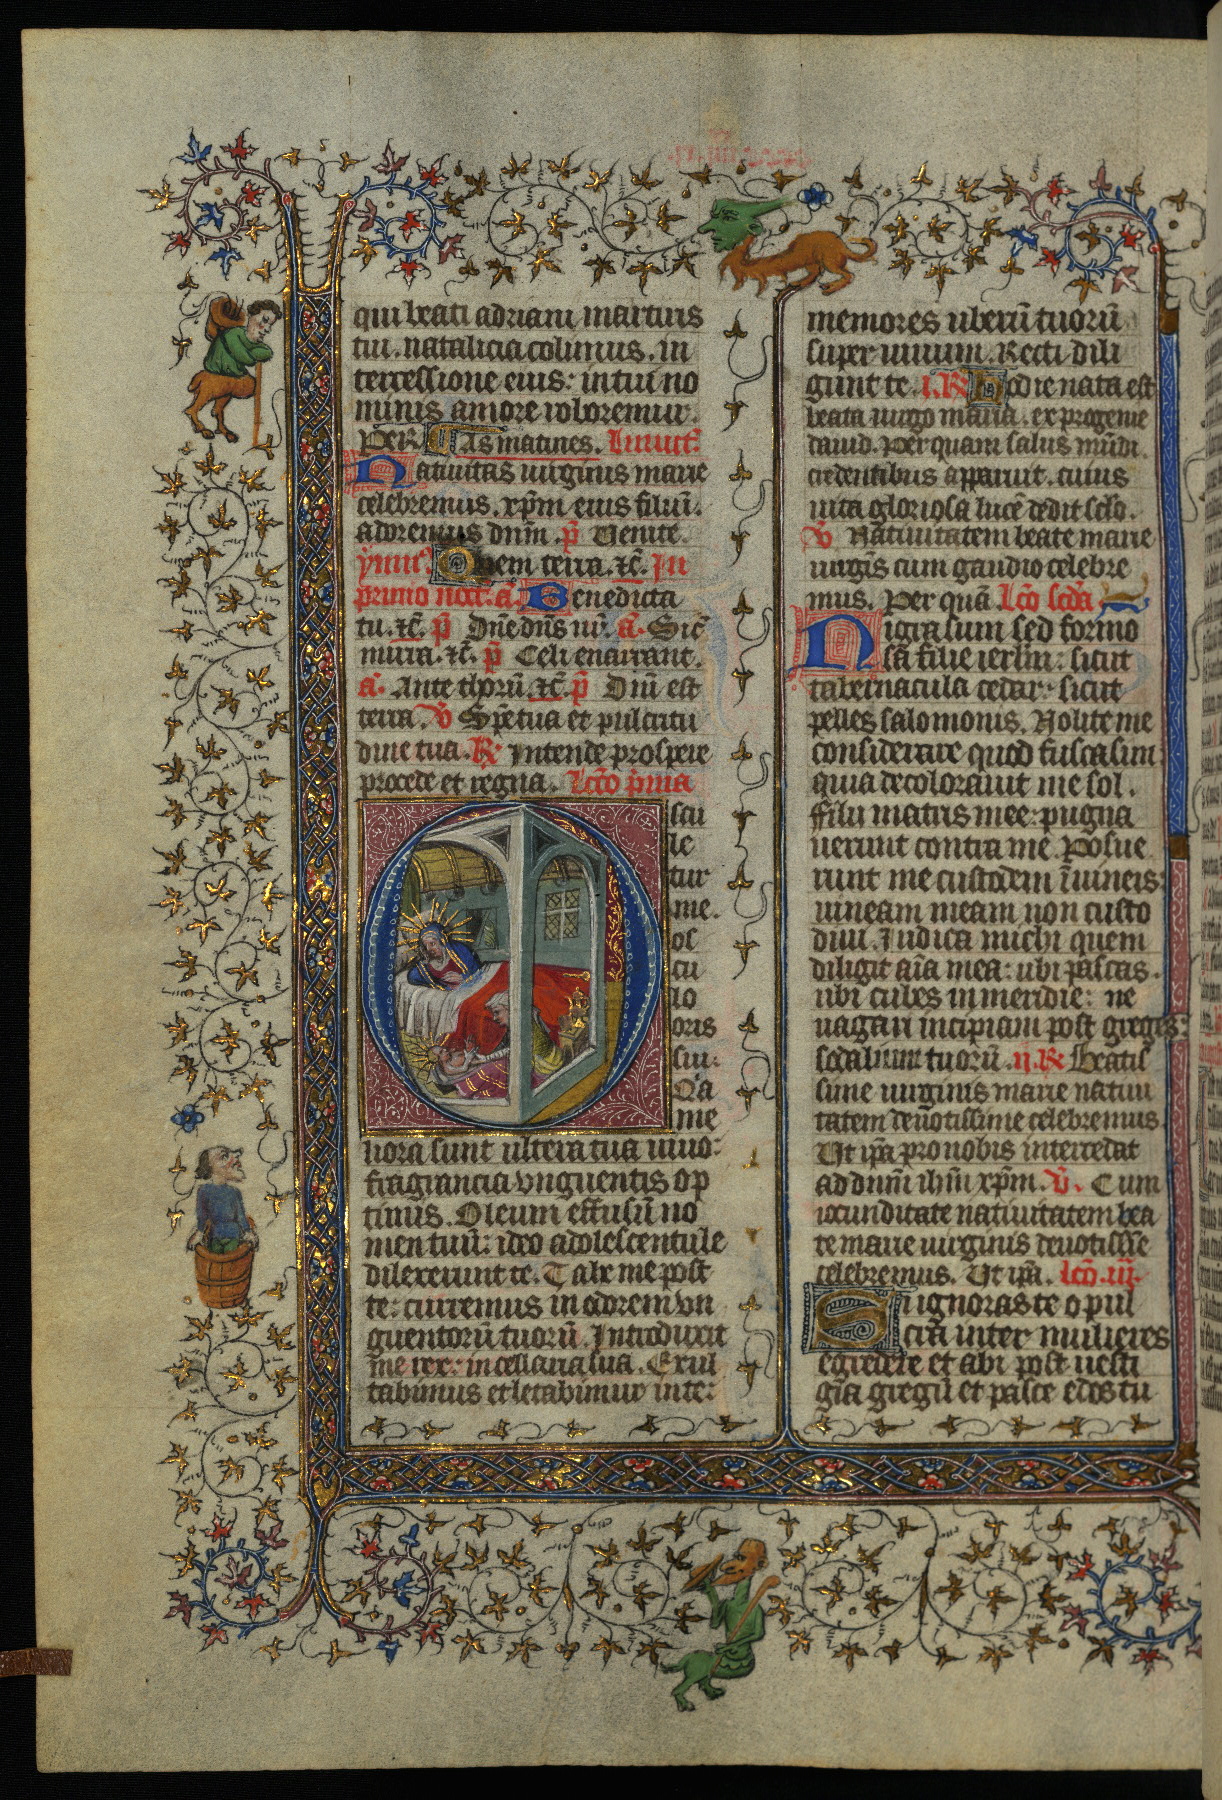 qui beati adriani martiris
tui. natalicia colimus. in
tercessione eius: in tui no
minis amore roboremur.
Per. As matines. Inuit.
Natiuitas uirginis marie
celebremus. xpm eius filiū.
adoremus dnm. p̄ Venite.
ymn9. Quem terra. ⁊c̄. In
primo noct. a. Benedicta
tu. ⁊c̄. p̄ Dne dns nr̄. a. Sic̄
mirra. ⁊c̄. p̄ Celi enarrant.
a. Ante thorū. ⁊c̄. p̄ Dni est
terra. v̄ Spetua et pulcritu
dine tua. R̄ Intende prospere
procede et regna. Lcō p̄ma
Oscu
le
tur
me.
os
cu
lo
oris
sui:
Qa
me
liora sunt ubera tua uino:
fragrancia vnguentis op
timis. Oleum effusū no
men tuū: ideo adolescentule
dilexerunt te. Trahe me post
te: curremus in odorem vn
guentorū tuorū. Introduxit
me rex: in cellaria sua. Exul
tabimus et letabimur in te:
memores uberū tuorū
super uinum. Recti dili
gunt te. i. R̄ Hodie nata est
beata uirgo maria. ex progenie
dauid. Per quam salus mūdi.
credentibus apparuit. cuius
uita gloriosa lucē dedit sclo.
v̄ Natiuitatem beate marie
uirgis cum gaudio celebre
mus. Per quā Lcō scda
Nigra sum sed formo
sa filie ierlm: sicut
tabernacula cedar: sicut
pelles salomonis. Nolite me
considerare quod fusca sim
quia decolorauit me sol.
Filii matris mee: pugna
uerunt contra me. Posue
runt me custodem ī uineis:
uineam meam non custo
diui. Indica michi quem
diligit aīa mea: ubi pascas.
ubi cubes in meridie: ne
uagari incipiam post greges:
sodalium tuorū. ii. R̄ Beatis
sime uirginis marie natiui
tatem deuotissime celebremus.
Ut ipa pro nobis intercedat
ad dnm ihm xpm. v̄. Cum
iocunditate natiuitatem bea
te marie uirginis deuotissīe
celebremus. Ut ipa. Lcō. iii.
Si ignoras te o pul
cra inter mulieres
egredere et abi post uesti
gia gregū et pasce edos tu